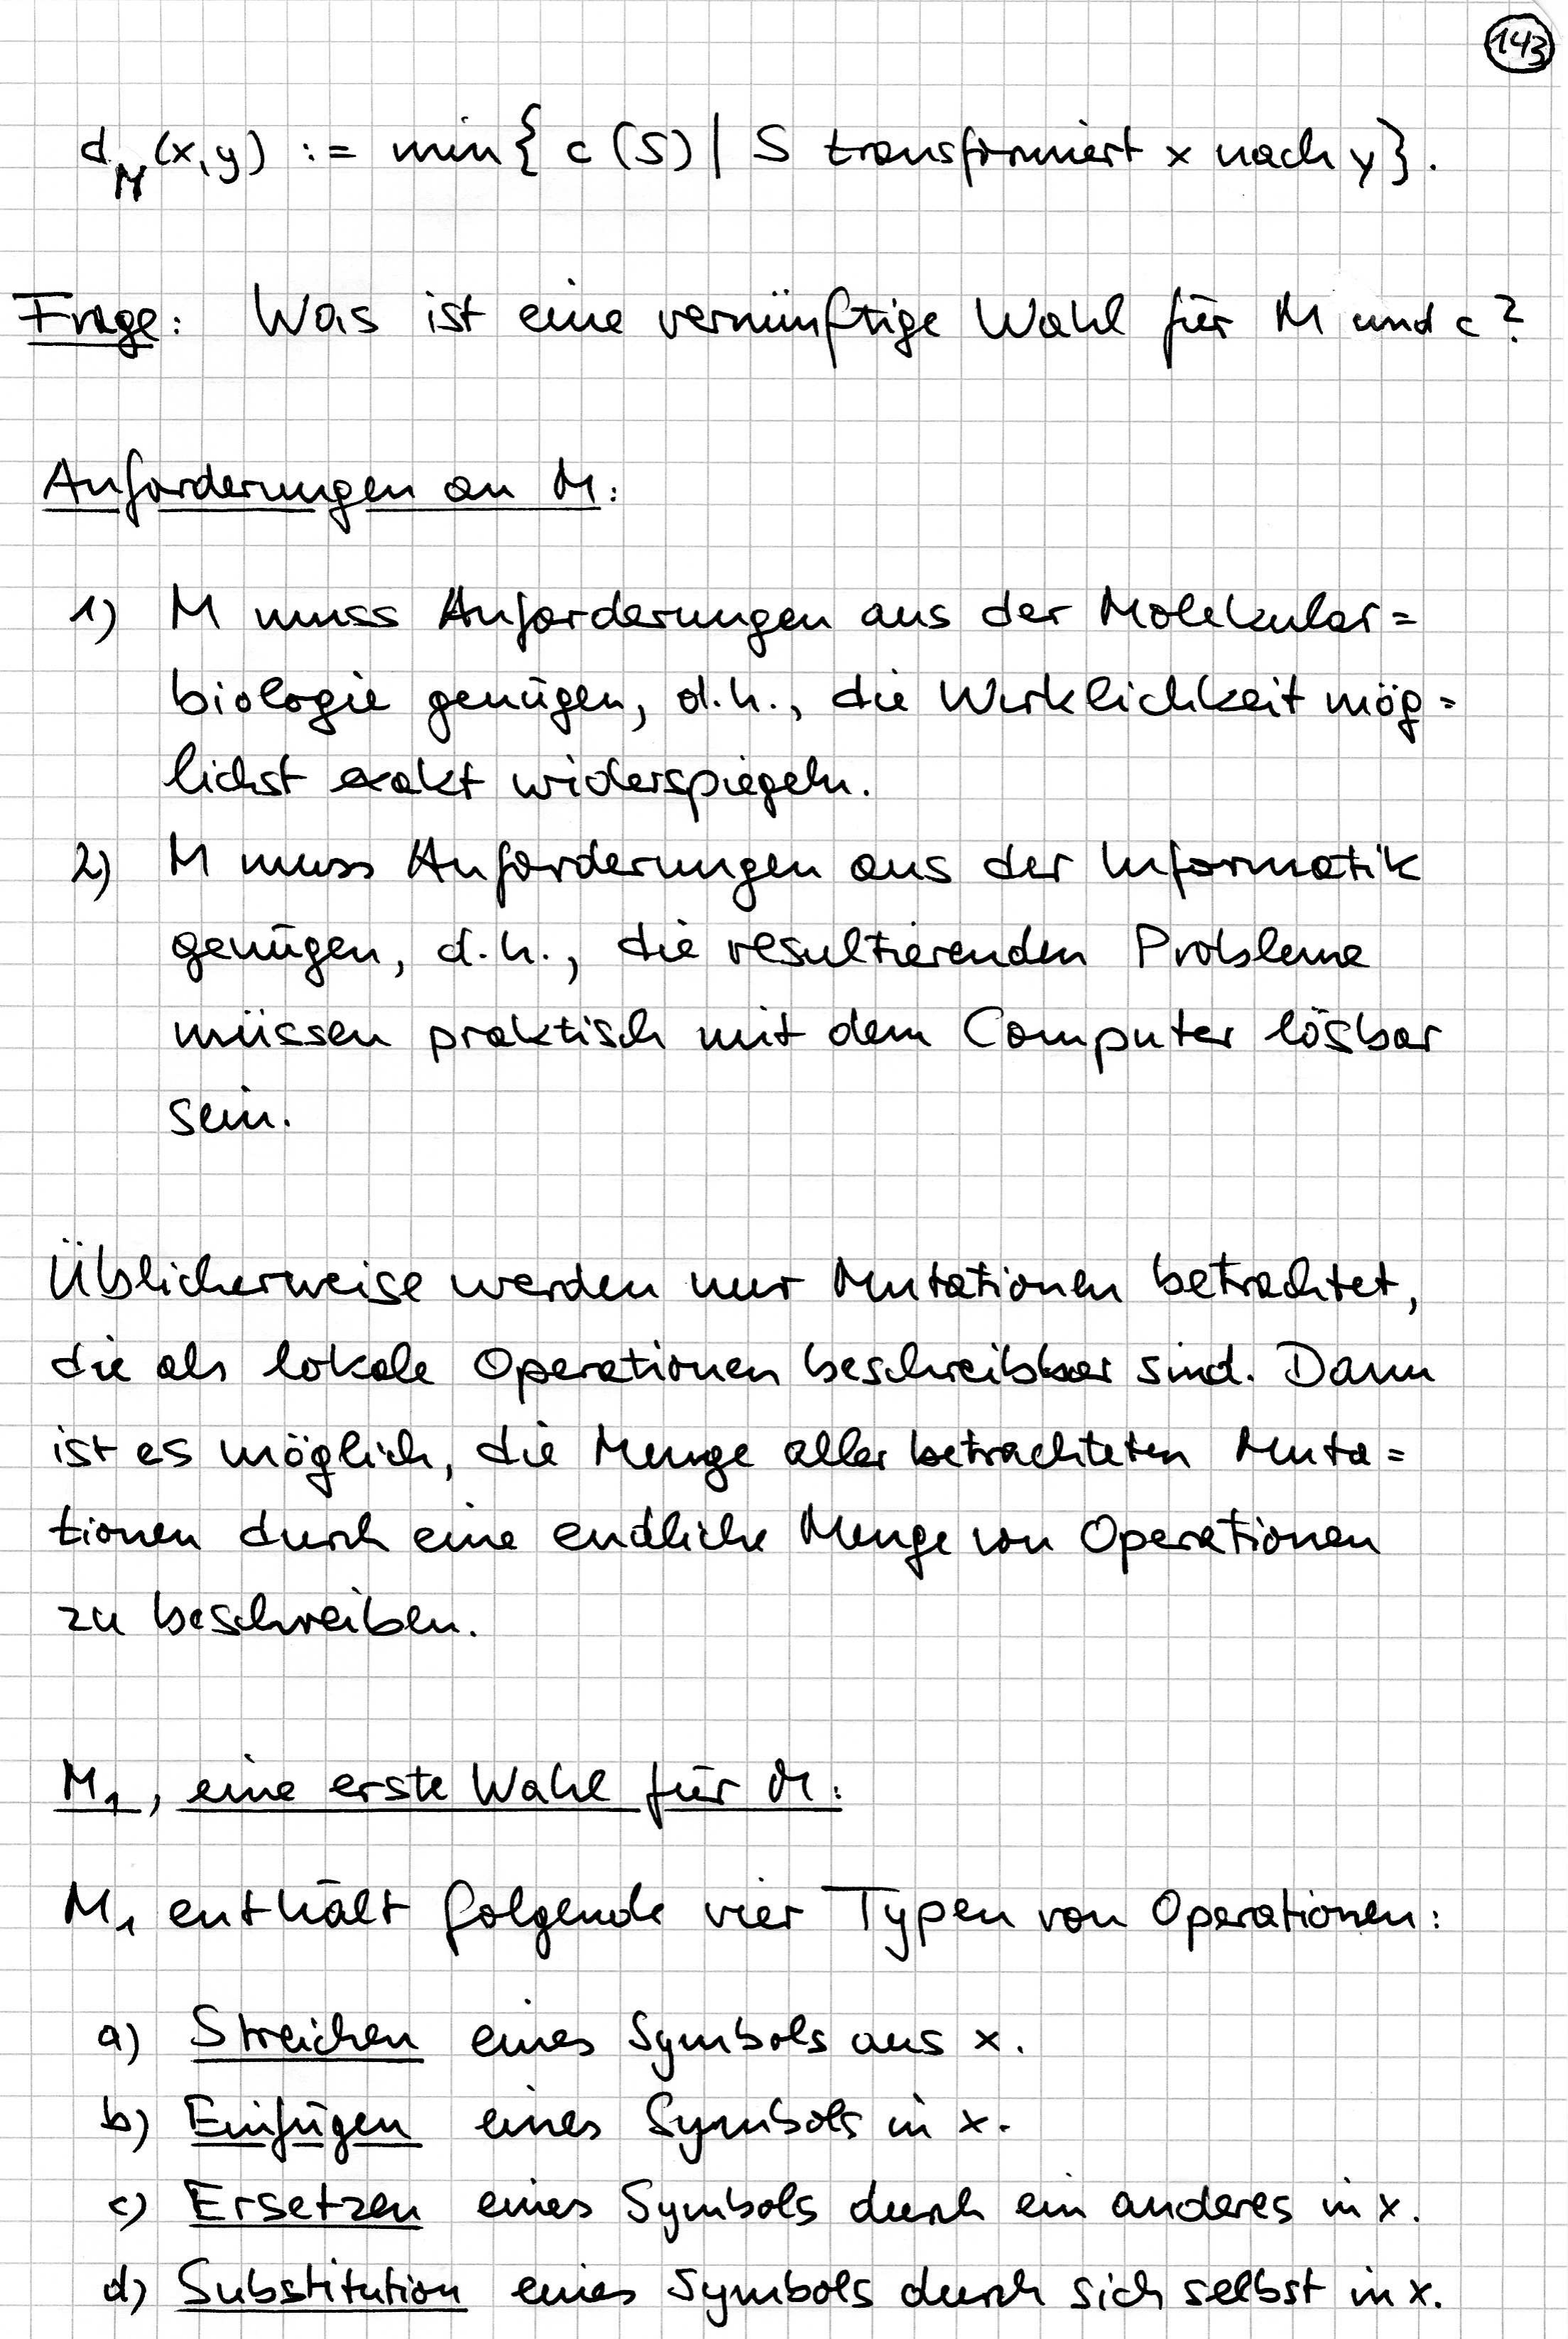 143
d_M(x,y) := min{ c(S) | S transformiert x nach y}.
Frage: Was ist eine vernünftige Wahl für M und c?
Anforderungen an M:
1) M muss Anforderungen aus der Molekular=
biologie genügen, d.h., die Wirklichkeit mög=
lichst exakt widerspiegeln.
2) M muss Anforderungen aus der Informatik
genügen, d.h., die resultierenden Probleme
müssen praktisch mit dem Computer lösbar
sein.
Üblicherweise werden nur Mutationen betrachtet,
die als lokale Operationen beschreibbar sind. Dann
ist es möglich, die Menge aller betrachteten Muta=
tionen durch eine endliche Menge von Operationen
zu beschreiben.
M₁, eine erste Wahl für M:
M₁ enthält folgende vier Typen von Operationen:
a) Streichen eines Symbols aus x.
b) Einfügen eines Symbols in x.
c) Ersetzen eines Symbols durch ein anderes in x.
d) Substitution eines Symbols durch sich selbst in x.